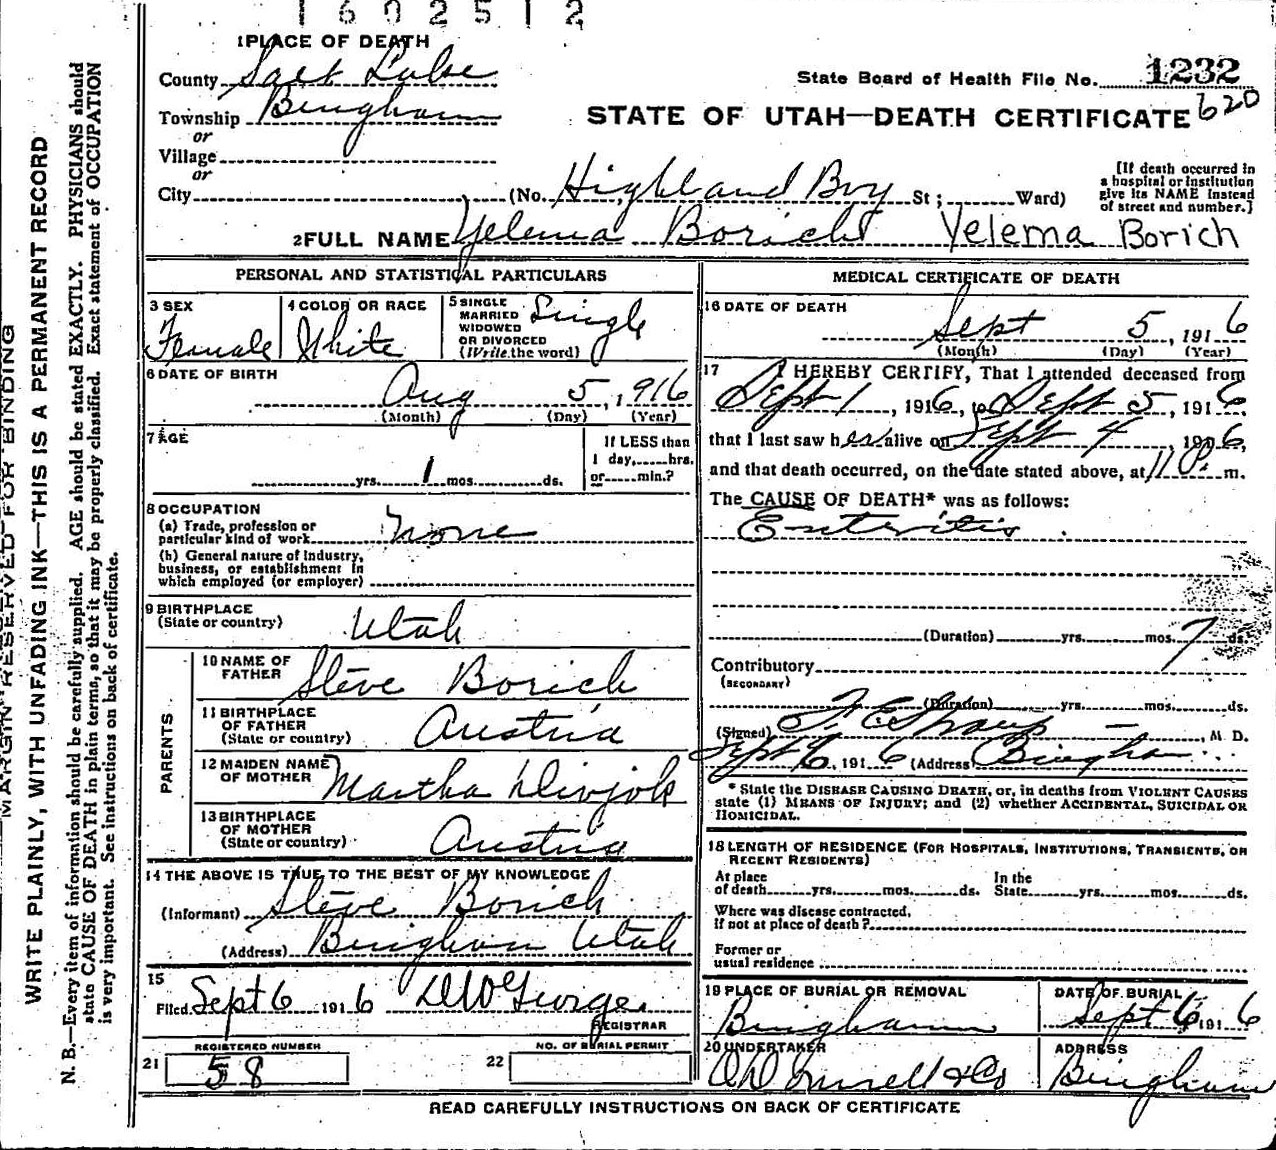 1602512
1 PLACE OF DEATH
County Salt Lake
State Board of Health File No. 1232
Township Bingham
620
STATE OF UTAH—DEATH CERTIFICATE
or
Village
or
City (No. Highland Boy St; Ward)
[If death occurred in
a hospital or institution
give its NAME instead
of street and number.]
2 FULL NAME Yelema Borich Yelema Borich
PERSONAL AND STATISTICAL PARTICULARS
3 SEX Female
4 COLOR OR RACE White
5 SINGLE
MARRIED
WIDOWED
OR DIVORCED
(Write the word) Single
6 DATE OF BIRTH
Aug 5, 1916
(Month) (Day) (Year)
7 AGE
yrs. 1 mos. ds.
If LESS than
1 day, hrs.
or min.?
8 OCCUPATION
(a) Trade, profession or
particular kind of work None
(b) General nature of industry,
business, or establishment in
which employed (or employer)
9 BIRTHPLACE
(State or country) Utah
PARENTS
10 NAME OF
FATHER Steve Borich
11 BIRTHPLACE
OF FATHER
(State or country) Austria
12 MAIDEN NAME
OF MOTHER Martha
13 BIRTHPLACE
OF MOTHER
(State or country) Austria
14 THE ABOVE IS TRUE TO THE BEST OF MY KNOWLEDGE
(Informant) Steve Borich
(Address) Bingham Utah
15
Filed Sept 6 1916
REGISTRAR
REGISTERED NUMBER
21 58
NO. OF BURIAL PERMIT
22
MEDICAL CERTIFICATE OF DEATH
16 DATE OF DEATH
Sept 5, 1916
(Month) (Day) (Year)
17 I HEREBY CERTIFY, That I attended deceased from
Sept 1, 1916, to Sept 5, 1916,
that I last saw her alive on Sept 4, 1906,
and that death occurred, on the date stated above, at 11 P. m.
The CAUSE OF DEATH* was as follows:
Enteritis.
(Duration) yrs. mos. 7 ds.
Contributory
(SECONDARY)
(Duration) yrs. mos. ds.
(Signed) , M. D.
Sept 6, 1916 (Address) Bingham
* State the DISEASE CAUSING DEATH, or, in deaths from VIOLENT CAUSES
state (1) MEANS OF INJURY; and (2) whether ACCIDENTAL, SUICIDAL OR
HOMICIDAL.
18 LENGTH OF RESIDENCE (FOR HOSPITALS, INSTITUTIONS, TRANSIENTS, OR
RECENT RESIDENTS)
At place
of death yrs. mos. ds.
In the
State yrs. mos. ds.
Where was disease contracted,
if not at place of death?
Former or
usual residence
19 PLACE OF BURIAL OR REMOVAL
Bingham
DATE OF BURIAL
Sept 6 1916
20 UNDERTAKER
& Co
ADDRESS
Bingham
READ CAREFULLY INSTRUCTIONS ON BACK OF CERTIFICATE
MARGIN RESERVED FOR BINDING
WRITE PLAINLY, WITH UNFADING INK—THIS IS A PERMANENT RECORD
N. B.—Every item of information should be carefully supplied. AGE should be stated EXACTLY. PHYSICIANS should
state CAUSE OF DEATH in plain terms, so that it may be properly classified. Exact statement of OCCUPATION
is very important. See instructions on back of certificate.